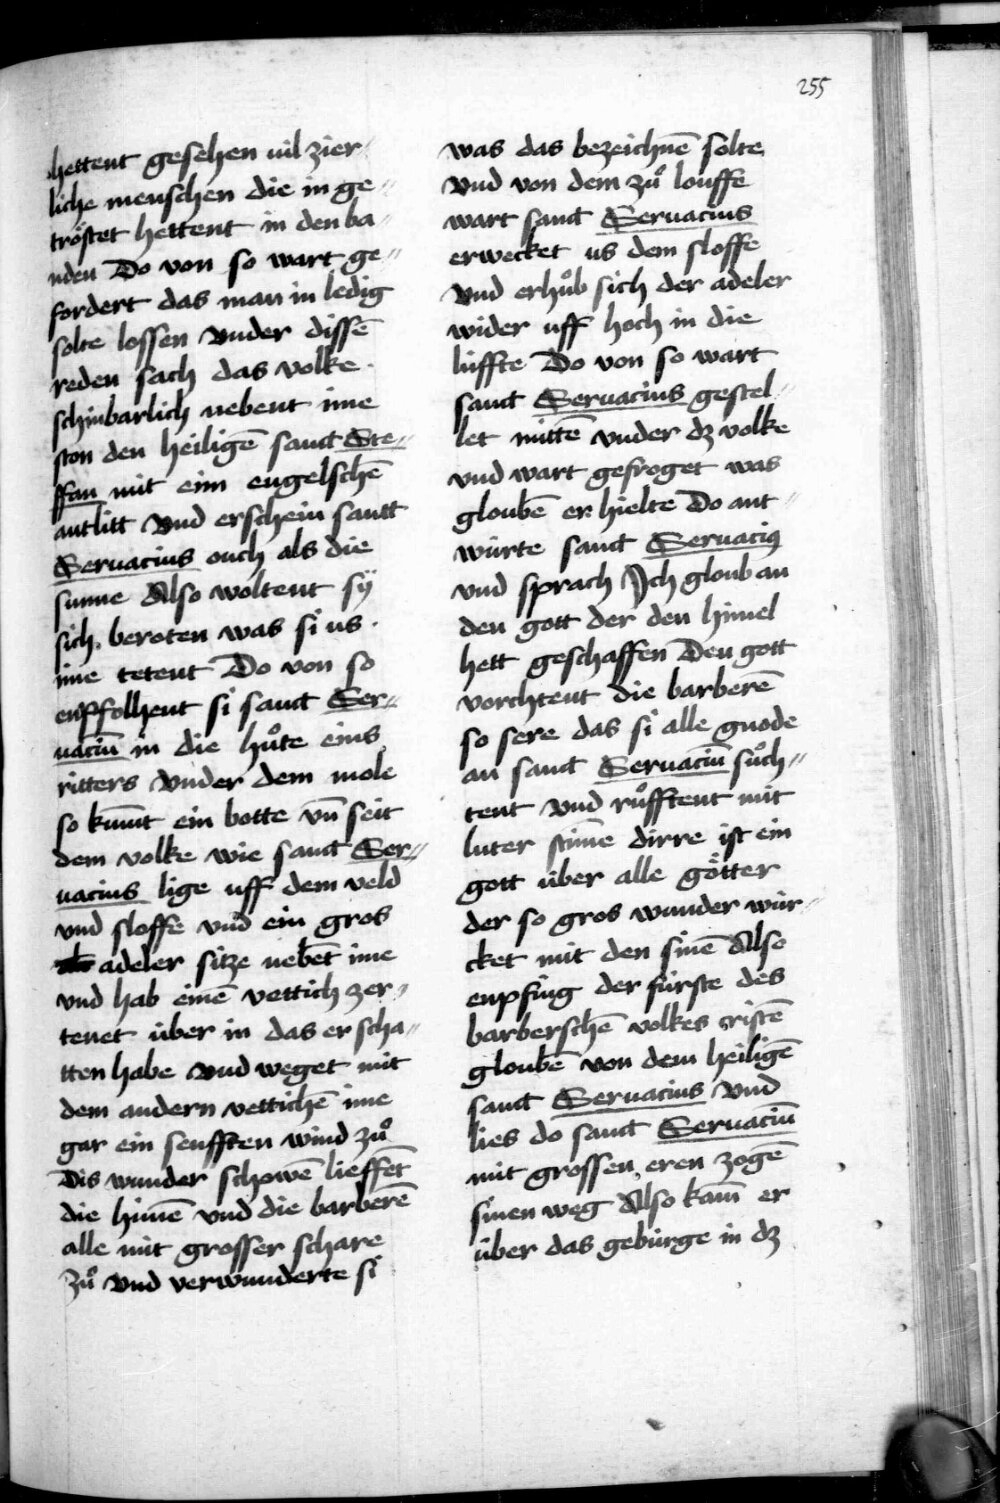 255
hettent gesehen uil zier⸗
liche menschen die in ge⸗
tröstet hettent in den ba⸗
nden Do von so wart ge⸗
fordert das man in ledig
solte lossen Vnder dissē
reden sach das volke ·
schinbarlich nebent ime
ston den heiligē sanct Ste⸗
ffan mit eim engelschē
antlitt Vnd erschein santt
Seruacius ouch als die
sunne Also woltent sÿ
sich beroten was si us
ime tetent Do von so
enpfolhent si sanct Ser⸗
uaciū in die huͦte eins
ritters Vnder dem mole
so kumt ein botte vn̄ seit
dem volke wie sanct Ser⸗
uacius lige uff dem veld
vnd sloffe vnd ein gros
adeler sitze nebēt ime
vnd hab einē vettich zer⸗
tenet über in das er scha⸗
tten habe Vnd weget mit
dem andern vettichē ime
gar ein senfften wind zuͦ
Dis wunder schowē lieffēt
die himē vnd die barberē
alle mit grosser schare
zuͦ Vnd verwunderte si
was das bezeichnē solte
Vnd von dem zuͦ louffe
wart sanct Seruacius
erwecket us dem sloffe
Vnd erhuͦb sich der adeler
wider uff hoch in die
lüffte Do von so wart
sanct Seruacius gestel⸗
let mittē vnder dz volke
vnd wart gefroget was
gloubē er hielte Do ant⸗
würte sanct Seruaciꝰ
vnd sprach Ich gloub an
den gott der den himel
hett geschaffen Den gott
vorchtent die barberē
so sere das si alle gnode
an sanct Seruaciū suͦch⸗
tent Vnd ruͦfftent mit
luter stim̄e dirre ist ein
gott über alle götter
der so gros wunder wür⸗
cket mit den sinē Also
enpfing der fürste des
barberschē volkes cristē
gloubē von dem heiligē
sanct Seruacius Vnd
lies do sanct Seruaciū
mit grossen eren zogē
sinen weg Also kam̄ er
über das gebürge in dz